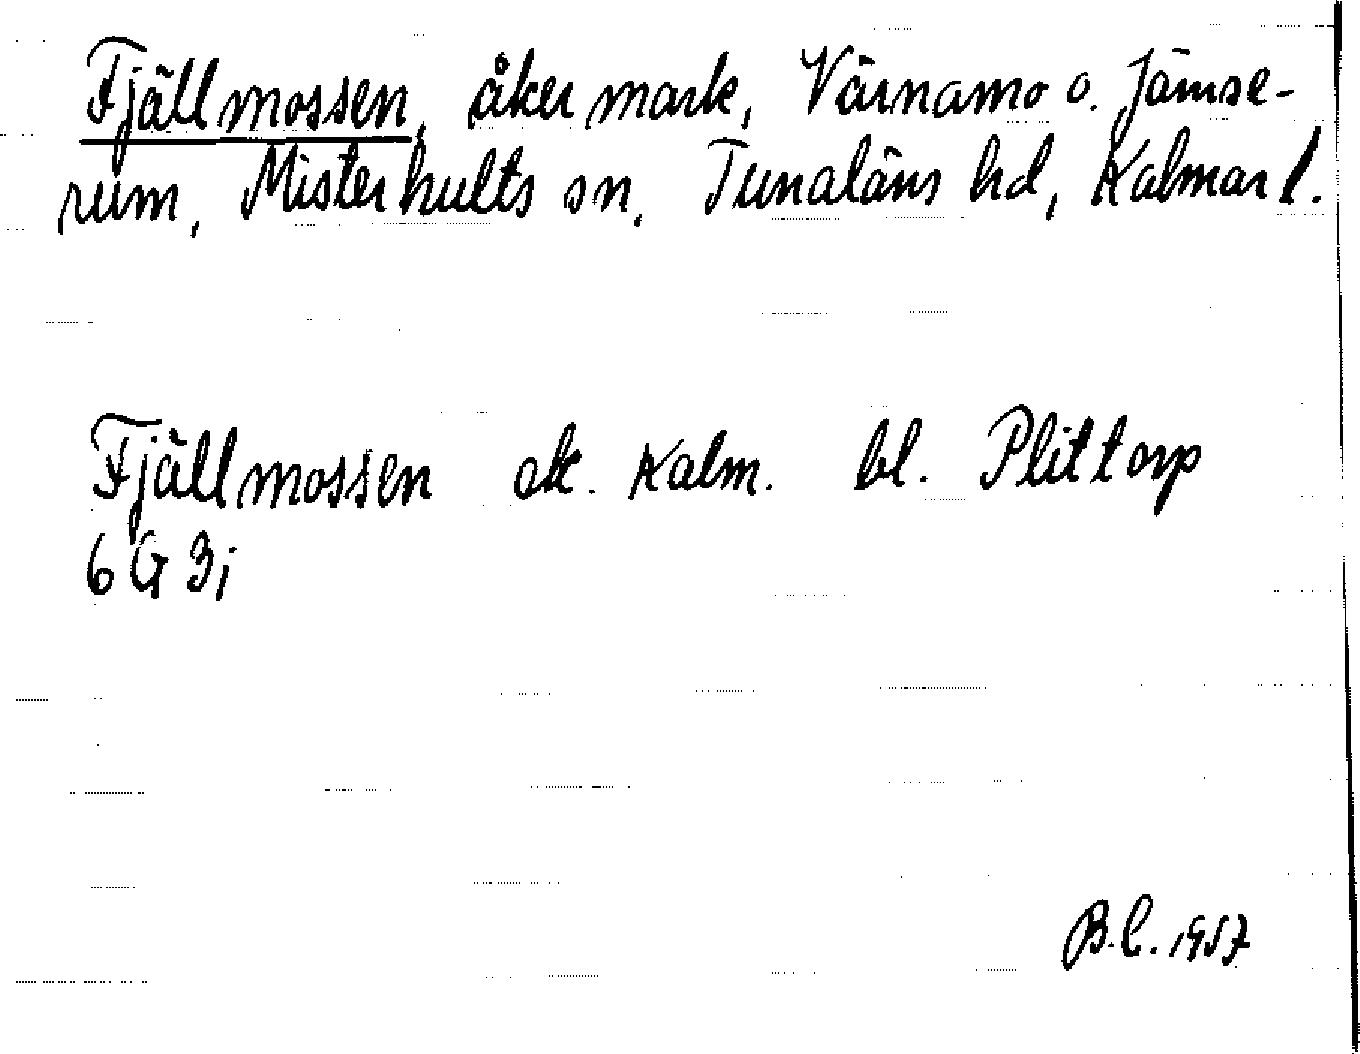 Fjällmossen, åkermark, Värnamo o. Jämse-
rum, Misterhults sn, Tunaläns hd, Kalmar l.
Fjällmossen ek. Kalm. bl. Plittorp
6 G 3j
B.C. 1957